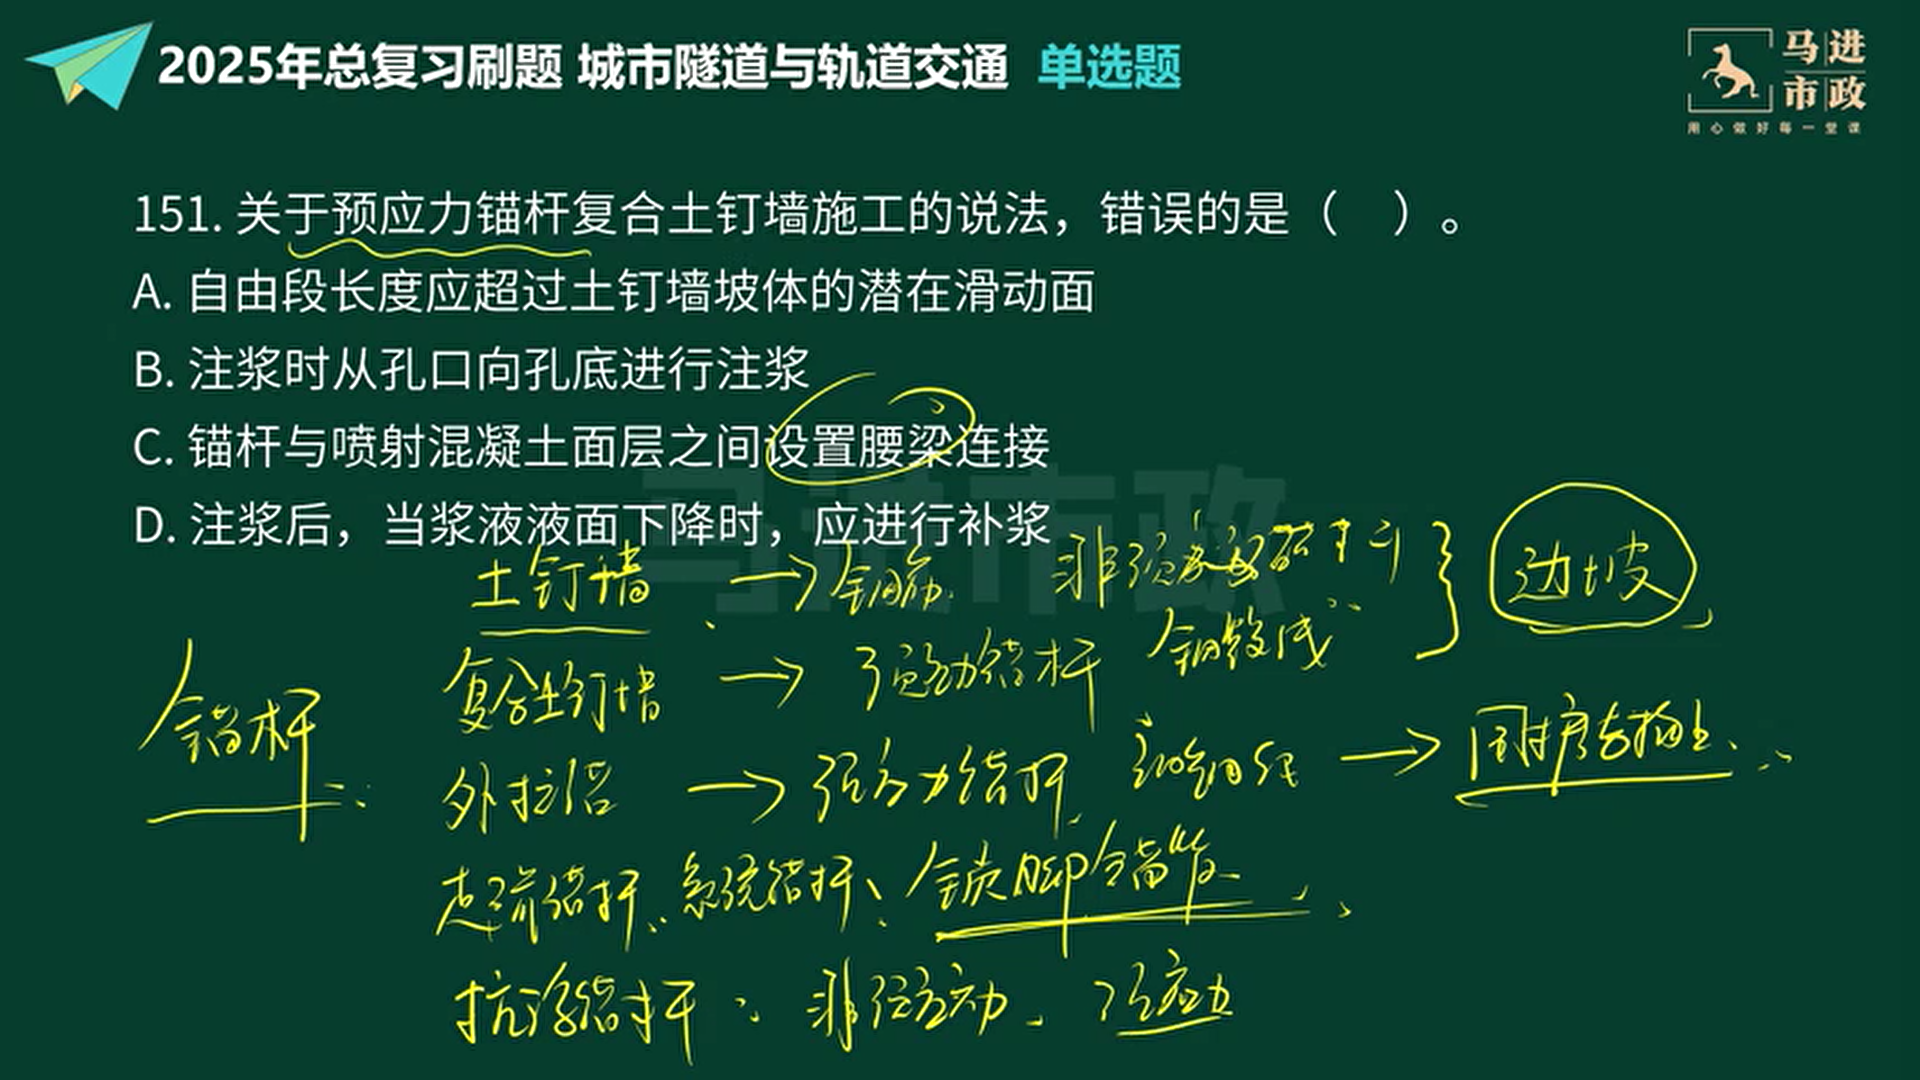 2025年总复习刷题 城市隧道与轨道交通 单选题
马进
市政
用心做好每一堂课
151. 关于预应力锚杆复合土钉墙施工的说法，错误的是（ ）。
A. 自由段长度应超过土钉墙坡体的潜在滑动面
B. 注浆时从孔口向孔底进行注浆
C. 锚杆与喷射混凝土面层之间设置腰梁连接
D. 注浆后，当浆液液面下降时，应进行补浆
马进市政
土钉墙 → 钢筋 非预应力锚杆 边坡
锚杆
复合土钉墙 → 预应力锚杆 钢绞线
外拉锚 → 预应力锚杆 → 围护与挡土
超前锚杆、系统锚杆、锁脚锚管
抗浮锚杆 非预应力 预应力